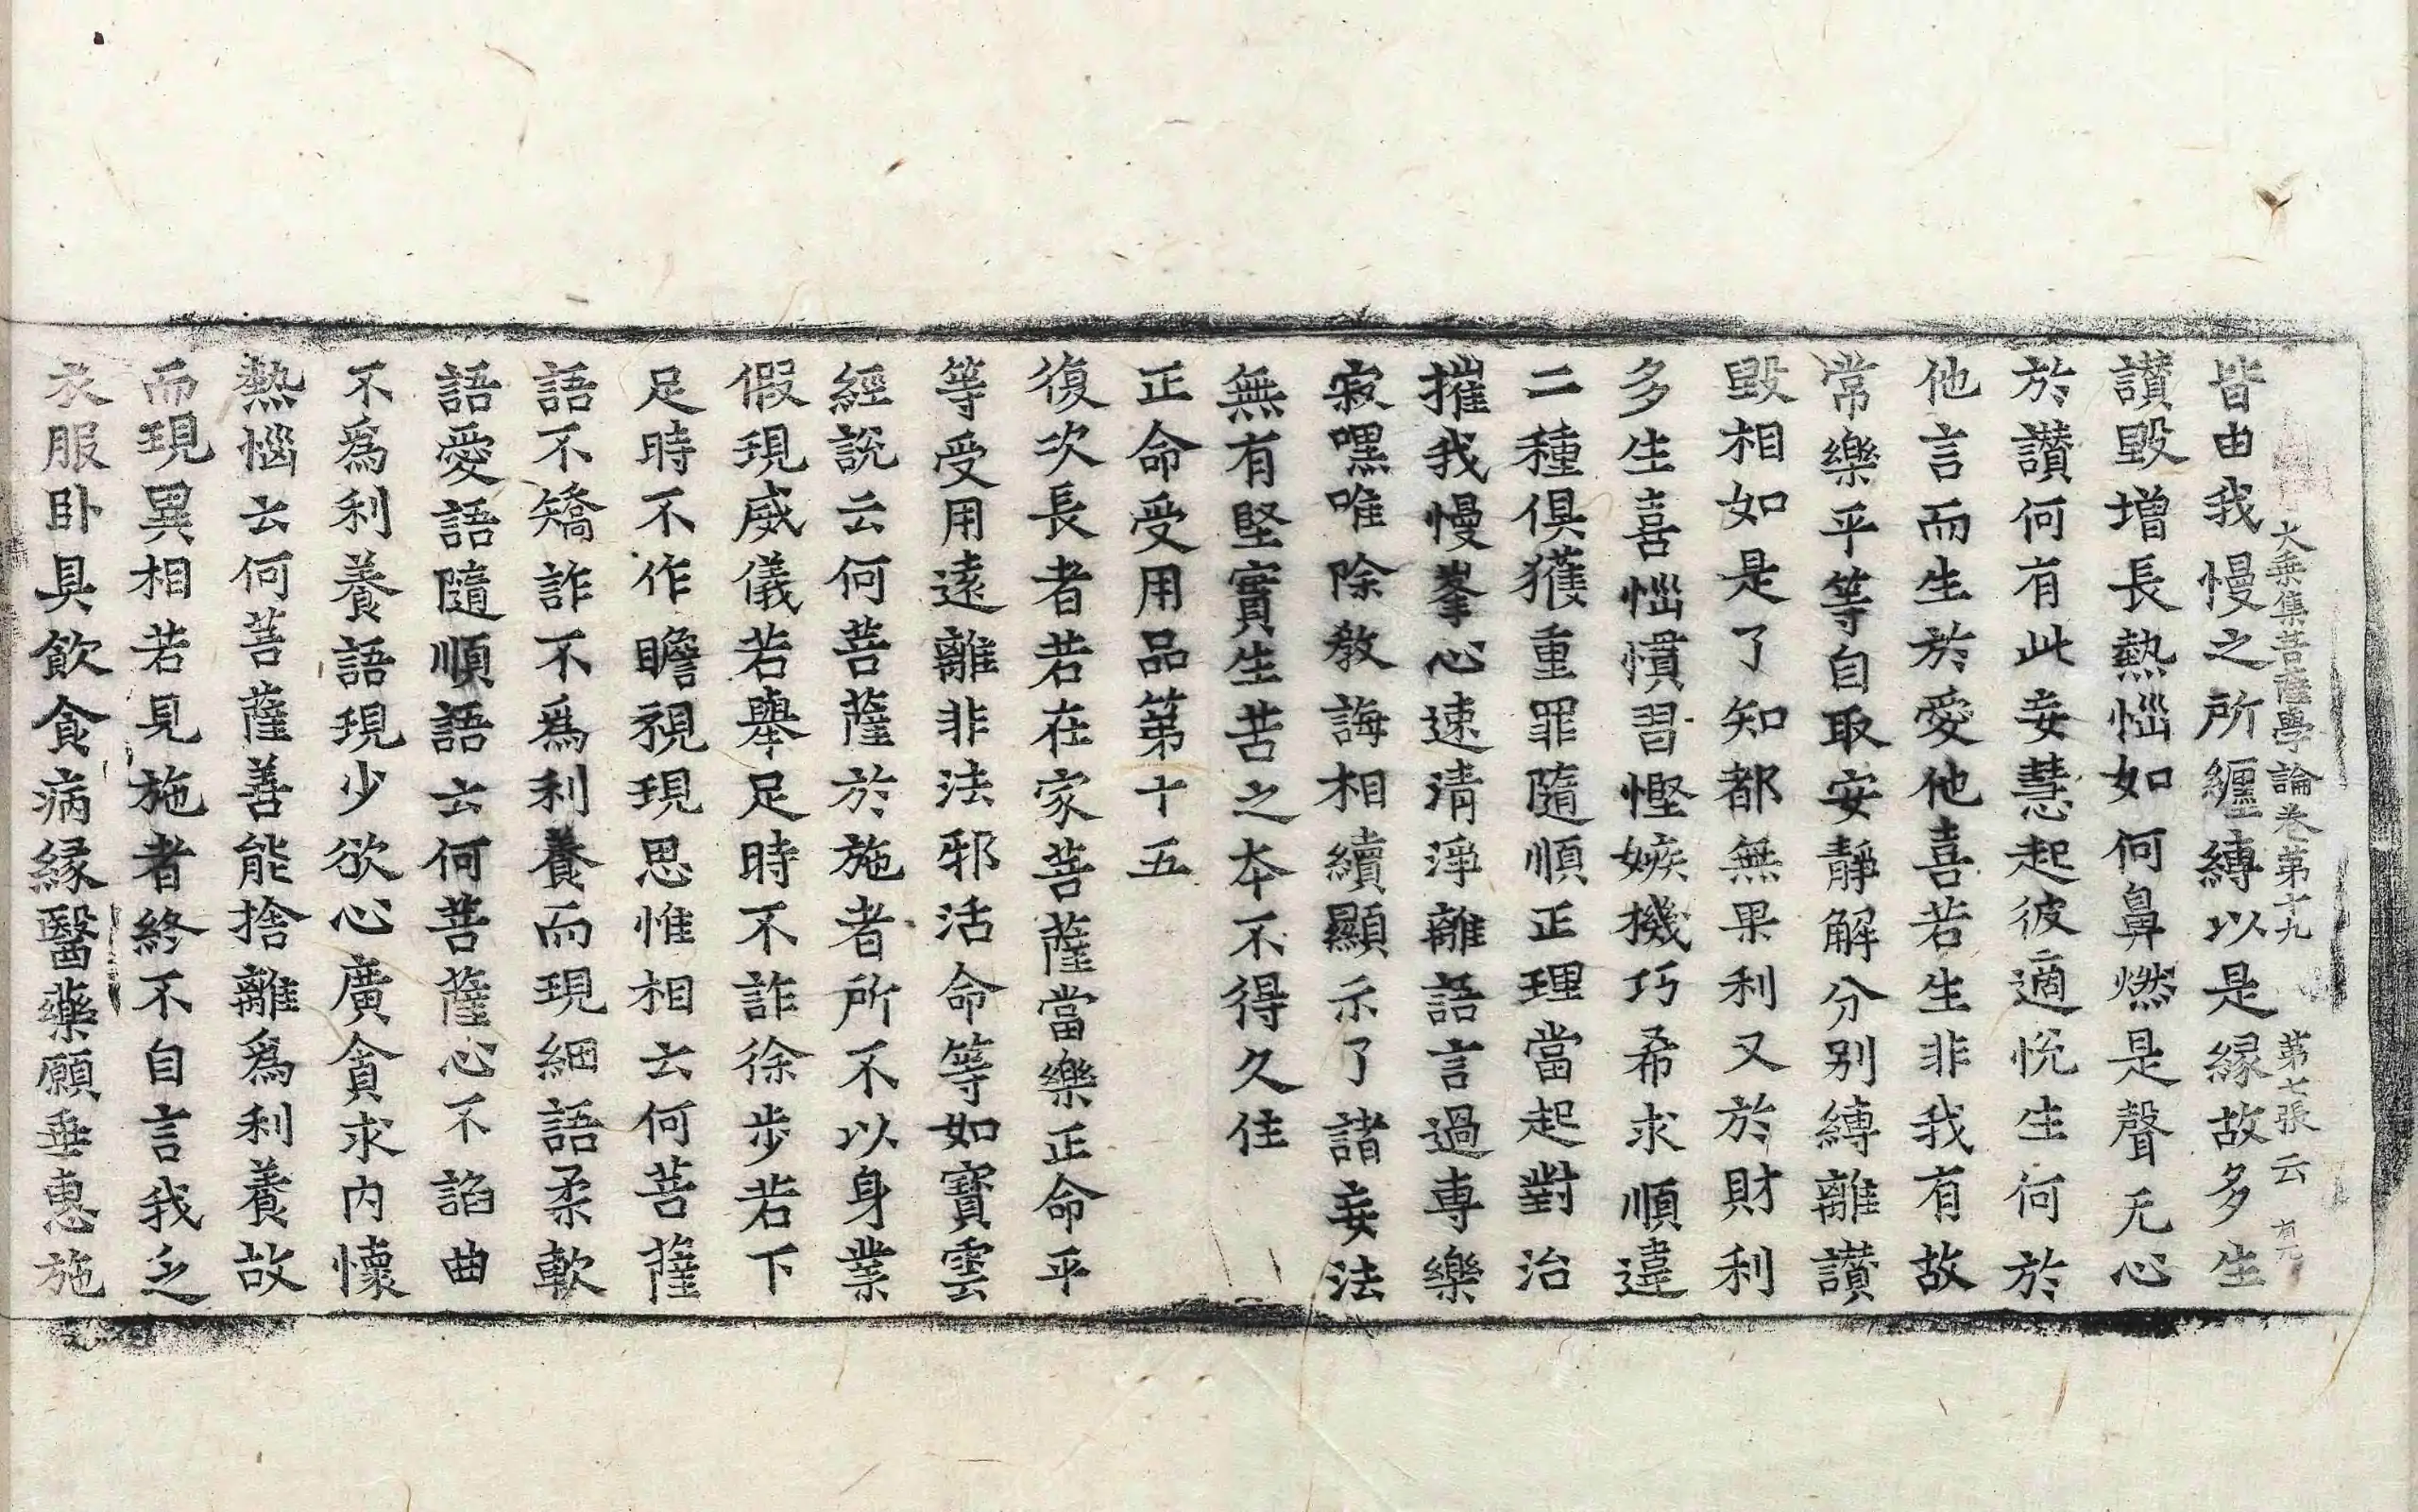 大乗集菩薩學論卷第十九 第七張 云
皆由我慢之所纒縛以是縁故多生
讃毀增長熱惱如何鼻燃是聲无心
於讃何有此妄慧起彼適悅生何於
他言而生於愛他喜若生非我有故
常樂平等自取安靜解分別縛離讃
毀相如是了知都無果利又於財利
多生喜惱憒習慳嫉機巧希求順違
二種俱獲重罪隨順正理當起對治
摧我慢峯心速清淨離語言過專樂
寂嘿唯除教誨相續顯示了諸妄法
無有堅實生苦之本不得久住
正命受用品第十五
復次長者若在家菩薩當樂正命乎
等受用遠離非法邪活命等如寶雲
經說云何菩薩於施者所不以身業
假現威儀若舉足時不詐徐步若下
足時不作瞻視現思惟相云何菩薩
語不矯詐不爲利養而現細語柔軟
語愛語隨順語云何菩薩心不諂曲
不爲利養語現少欲心廣貪求內懷
熱惱云何菩薩善能捨離爲利養故
而現異相若見施者終不自言我乏
衣服卧具飮食病縁醫藥願垂惠施